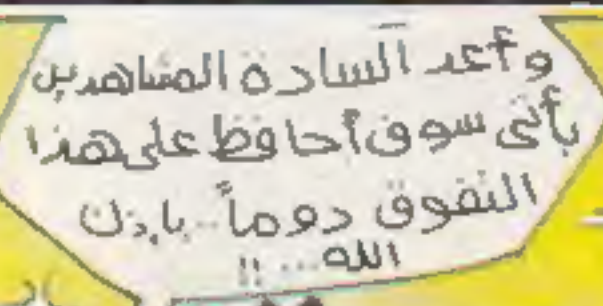 وأعد السادة المشاهدين
بأني سوف أحافظ على هذا
التفوق دوماً.. بإذن
الله...!!